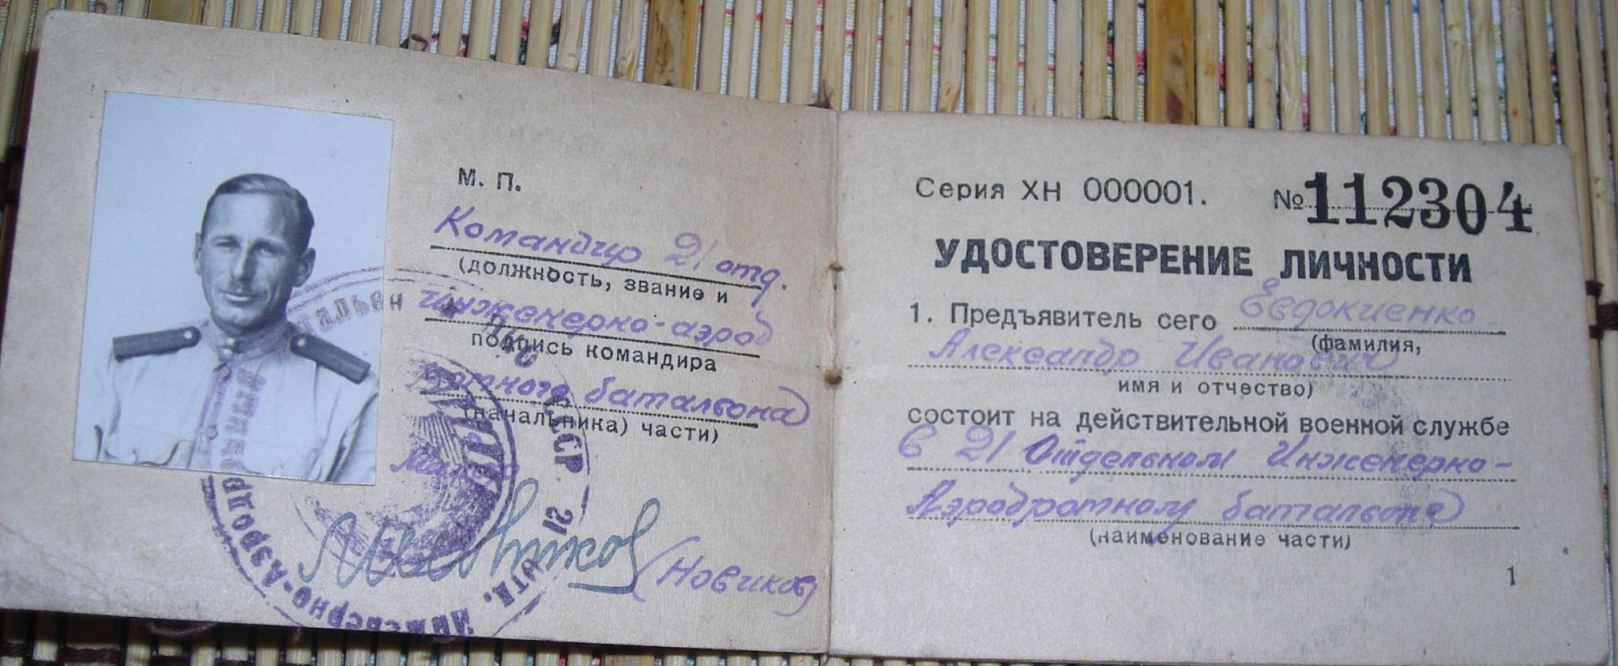 М. П.
Командир 21 отд.
(должность, звание и
инженерно-аэрод
подпись командира
ромного батальона
(начальника) части)
Майор
(Новиков)
Инженерно-Аэродр
21 отд.
Серия ХН 000001. №112304
УДОСТОВЕРЕНИЕ ЛИЧНОСТИ
1. Предъявитель сего Евдокиенко
(фамилия,
Александр Иванович
имя и отчество)
состоит на действительной военной службе
в 21 Отдельном Инженерно-
Аэродромном батальоне
(наименование части)
1